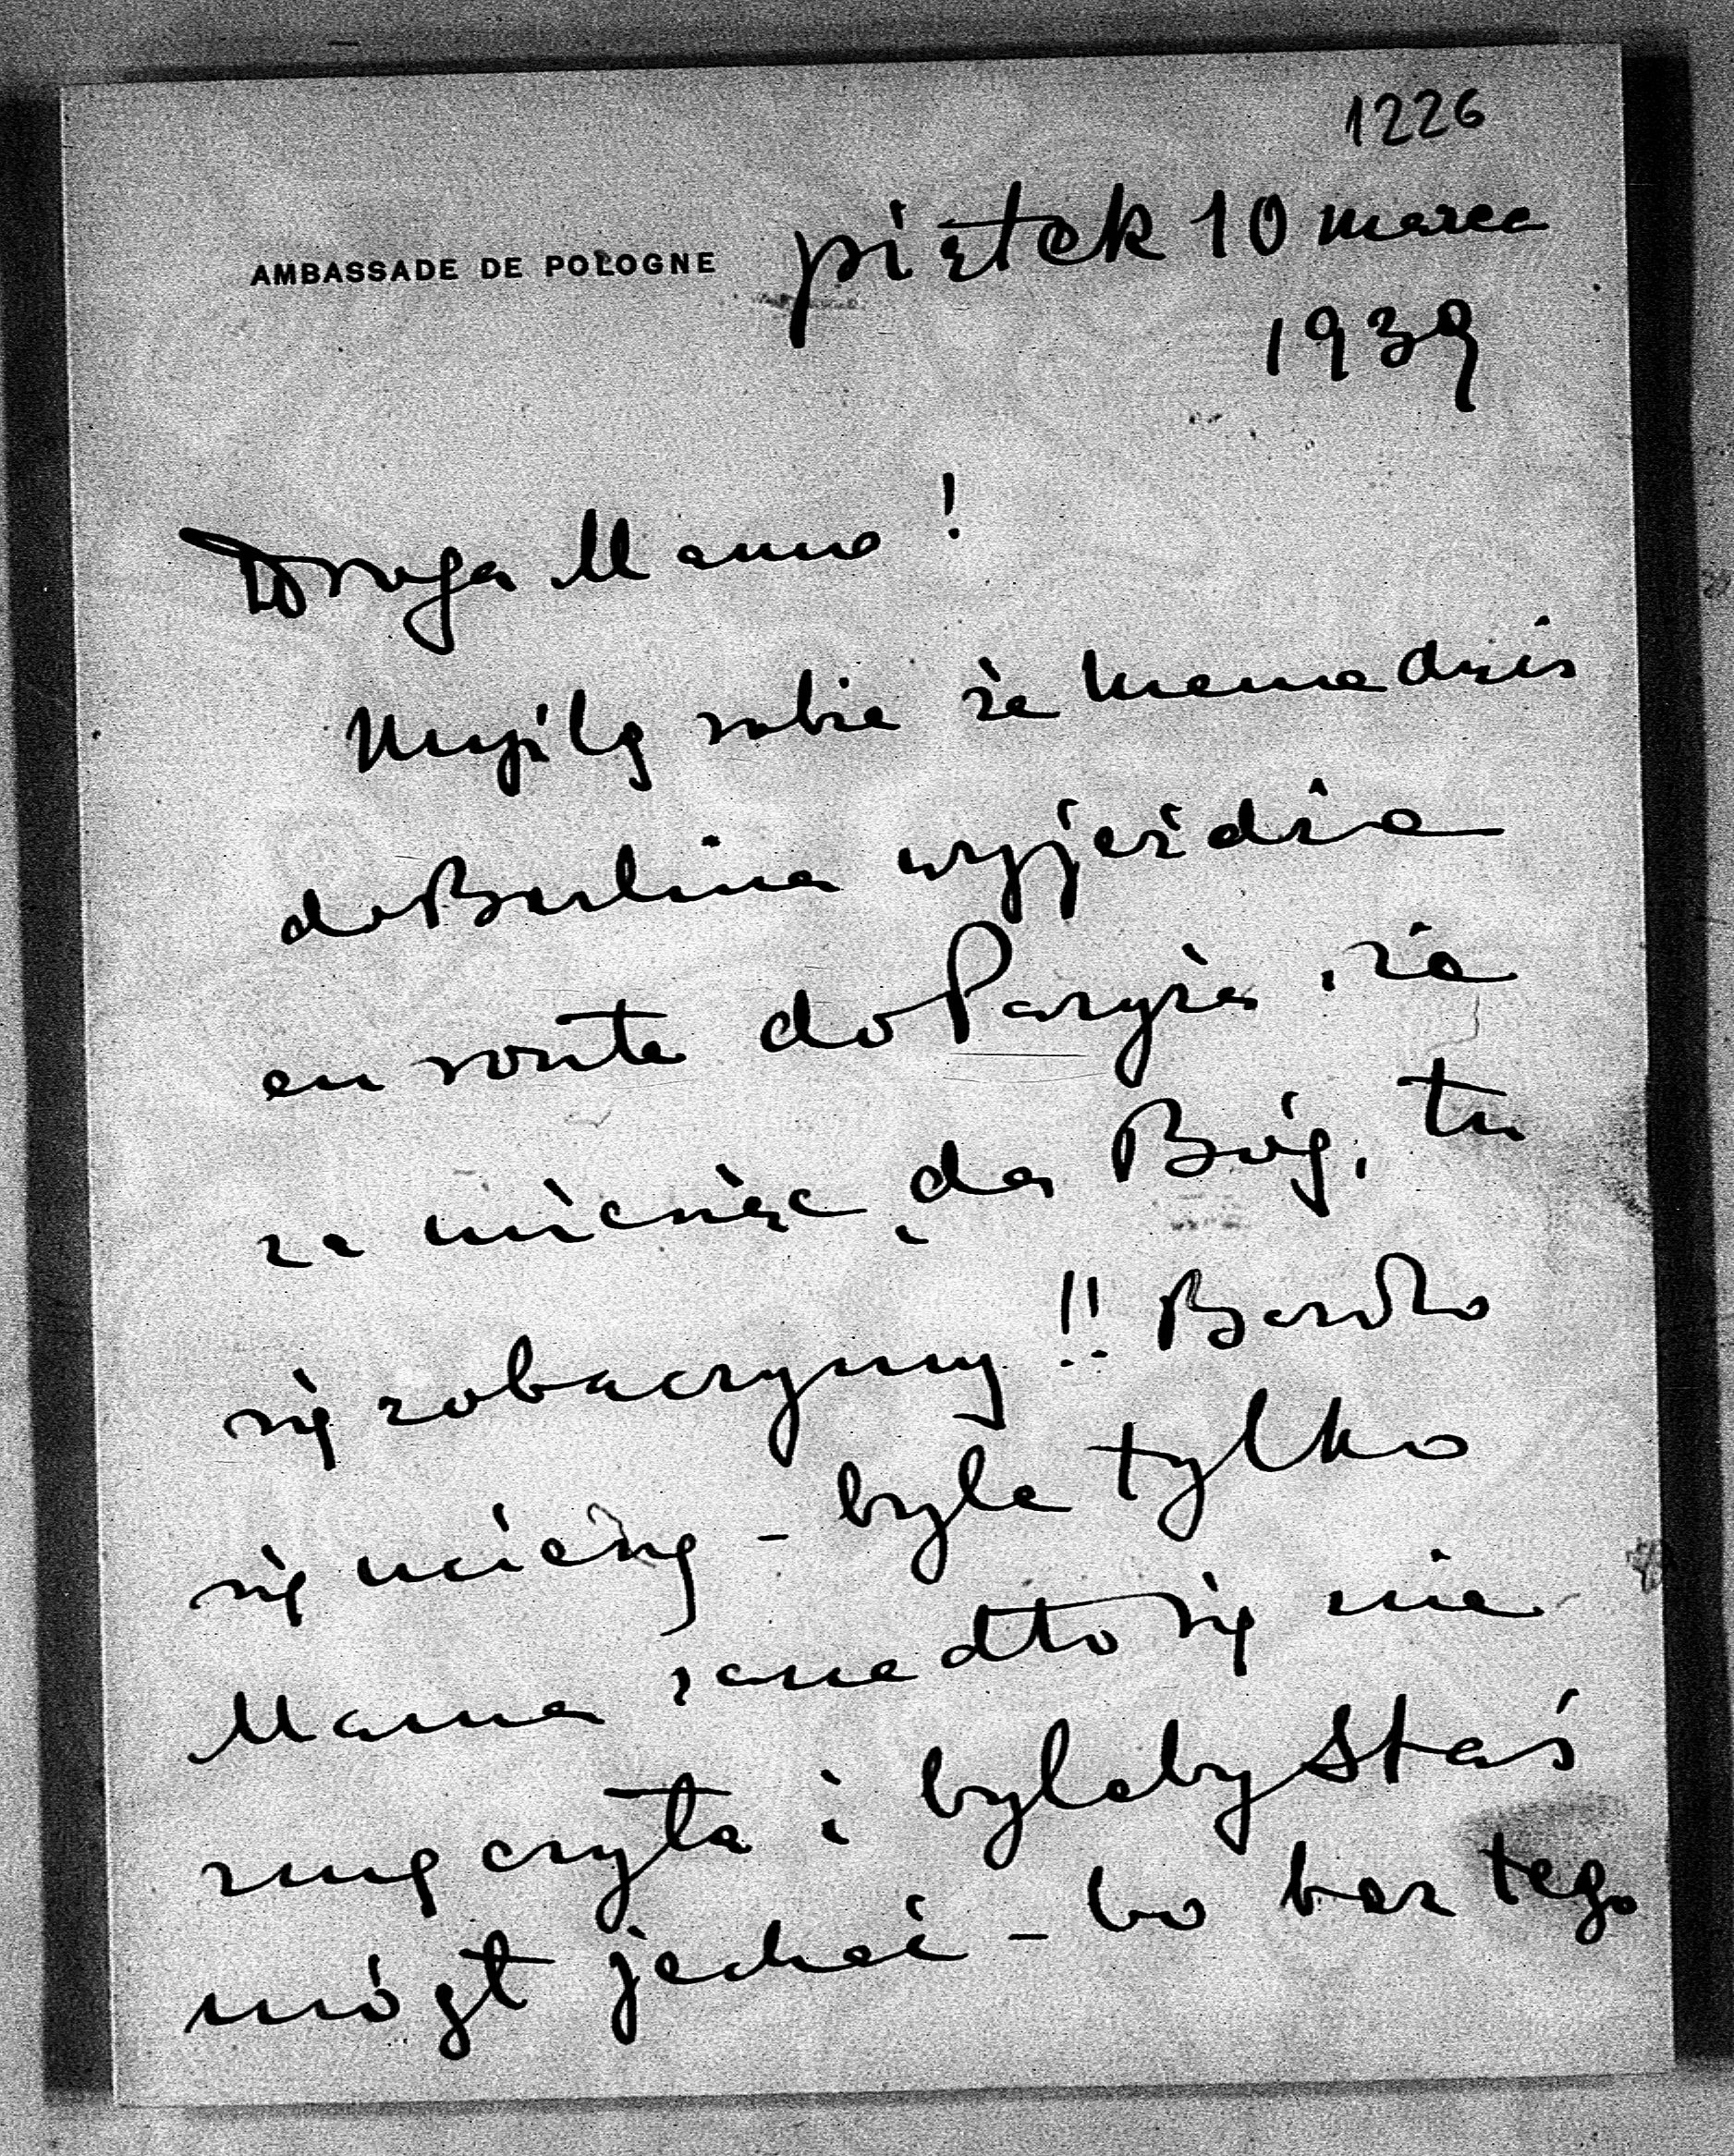 1226
AMBASSADE DE POLOGNE piątek 10 marca
1939
Droga Mamo!
Myślę sobie że Mama dziś
do Berlina wyjeżdża
en route do Paryża, że
za miesiąc, da Bóg, tu
się zobaczymy!! Bardzo
się cieszę - byle tylko
Mama zanadto się nie
zmęczyła i byleby Staś
mógł jechać - bo bez tego